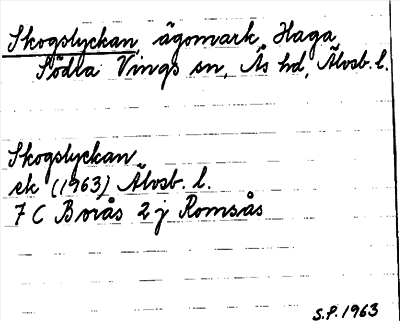 Skogslyckan, ägomark, Haga
Södra Vings sn, Ås hd, Älvsb. l.
Skogslyckan
ek (1963) Älvsb. l.
7 C Borås 2 j Romsås
S.P. 1963